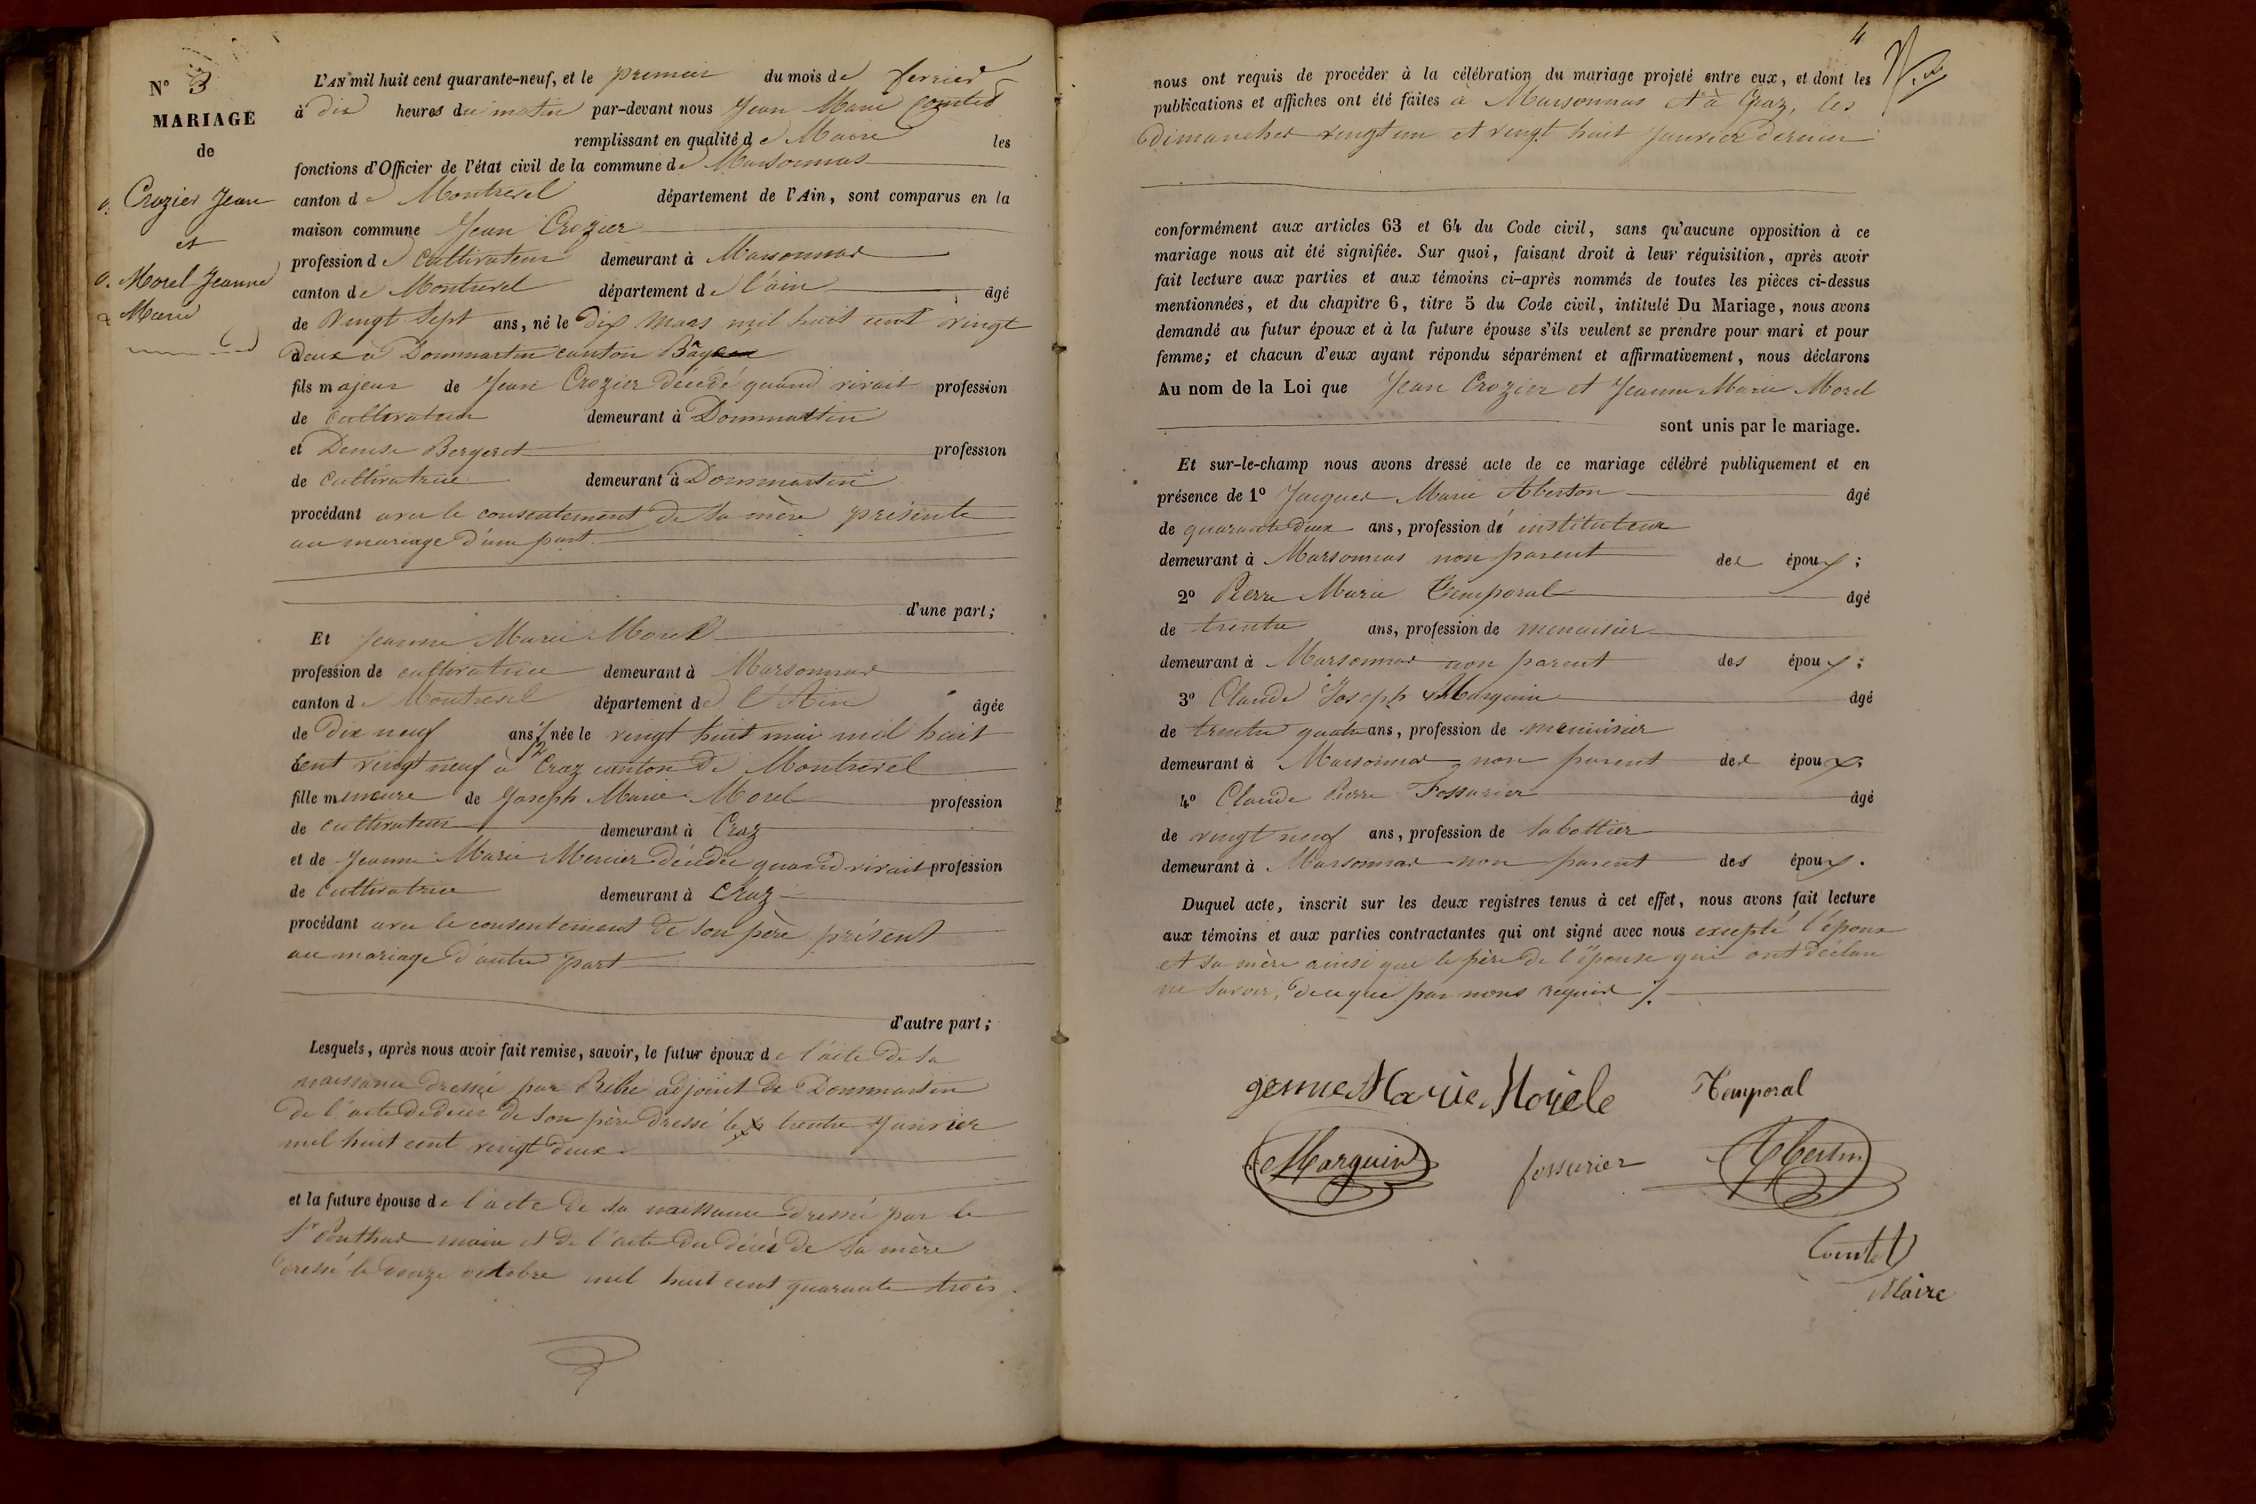 N° 3
MARIAGE
de
Crozier Jean
et
Morel Jeanne
Marie
L'AN mil huit cent quarante-neuf, et le premier du mois de fevrier
à dix heures du matin par-devant nous Jean Marie Comtet
remplissant en qualité de Maire les
fonctions d'Officier de l'état civil de la commune de Marsonnas
canton de Montrevel département de l'Ain, sont comparus en la
maison commune Jean Crozier
profession de Cultivateur demeurant à Marsonnas
canton de Montrevel département de l'ain âgé
de Vingt Sept ans, né le dix Mars mil huit cent vingt
deux à Dommartin canton Bâgé
fils majeur de Jean Crozier décédé quand vivait profession
de Cultivateur demeurant à Dommartin
et Denise Bergeret profession
de Cultivatrice demeurant à Dommartin
procédant avec le consentement de sa mère présente
au mariage d'une part
d'une part;
Et Jeanne Marie Morel
profession de cultivatrice demeurant à Marsonnas
canton de Montrevel département de l'Ain âgée
de Dix neuf ans 1/2 née le vingt huit mai mil huit
Cent vingt neuf à Craz canton de Montrevel
fille mineure de Joseph Marie Morel profession
de Cultivateur demeurant à Craz
et de Jeanne Marie Mercier décédée quand vivait profession
de Cultivatrice demeurant à Craz
procédant avec le consentement de son père présent
au mariage d'autre part
d'autre part;
Lesquels, après nous avoir fait remise, savoir, le futur époux de l'acte de sa
naissance dressé par adjoint de Dommartin
de l'acte de décès de son père dressé le trente Janvier
mil huit cent vingt deux
et la future épouse de l'acte de sa naissance dressé par le
Sr maire et de l'acte du décès de sa mère
dressé le onze octobre mil huit cent quarante trois
4
nous ont requis de procéder à la célébration du mariage projeté entre eux, et dont les
publications et affiches ont été faites à Marsonnas et à Craz, les
dimanches vingt un et vingt huit Janvier dernier
conformément aux articles 63 et 64 du Code civil, sans qu'aucune opposition à ce
mariage nous ait été signifiée. Sur quoi, faisant droit à leur réquisition, après avoir
fait lecture aux parties et aux témoins ci-après nommés de toutes les pièces ci-dessus
mentionnées, et du chapitre 6, titre 5 du Code civil, intitulé Du Mariage, nous avons
demandé au futur époux et à la future épouse s'ils veulent se prendre pour mari et pour
femme; et chacun d'eux ayant répondu séparément et affirmativement, nous déclarons
Au nom de la Loi que Jean Crozier et Jeanne Marie Morel
sont unis par le mariage.
Et sur-le-champ nous avons dressé acte de ce mariage célébré publiquement et en
présence de 1° Jacques Marie Aberton âgé
de quarante deux ans, profession d'instituteur
demeurant à Marsonnas non parent des époux;
2° Pierre Marie Temporal âgé
de trente ans, profession de menuisier
demeurant à Marsonnas non parent des époux;
3° Claude Joseph Marguin âgé
de trente quatre ans, profession de menuisier
demeurant à Marsonnas non parent des époux
4° Claude Pierre Fossurier âgé
de vingt neuf ans, profession de sabottier
demeurant à Marsonnas non parent des époux.
Duquel acte, inscrit sur les deux registres tenus à cet effet, nous avons fait lecture
aux témoins et aux parties contractantes qui ont signé avec nous excepté l'époux
et sa mère ainsi que le père de l'épouse qui ont déclaré
ne savoir, de ce que par nous requis /.
genne Marie Morele Temporal
Marguin fossurier Aberton
Comtet
Maire